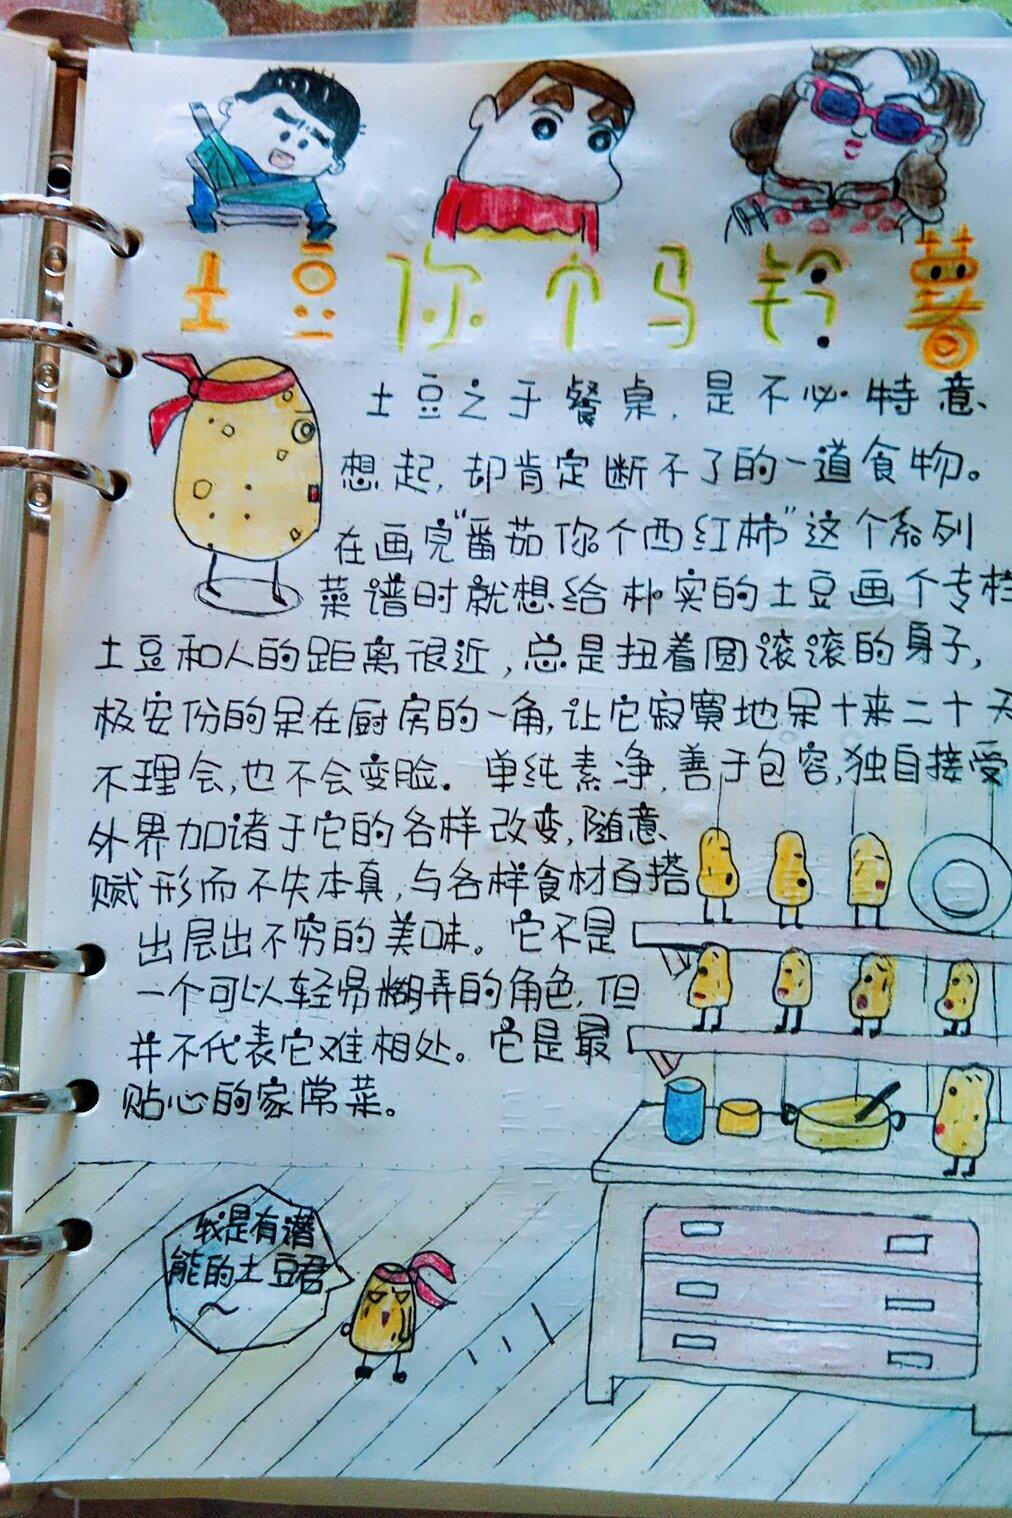 土豆你个马铃薯
土豆之于餐桌，是不必特意
想起，却肯定断不了的一道食物。
在画完“番茄你个西红柿”这个系列
菜谱时就想给朴实的土豆画个专栏
土豆和人的距离很近，总是扭着圆滚滚的身子，
极安份的呆在厨房的一角，让它寂寞地呆十来二十天
不理会，也不会变脸。单纯素净，善于包容，独自接受
外界加诸于它的各样改变，随意
赋形而不失本真，与各样食材百搭
出层出不穷的美味。它不是
一个可以轻易糊弄的角色，但
并不代表它难相处。它是最
贴心的家常菜。
我是有潜
能的土豆君
～